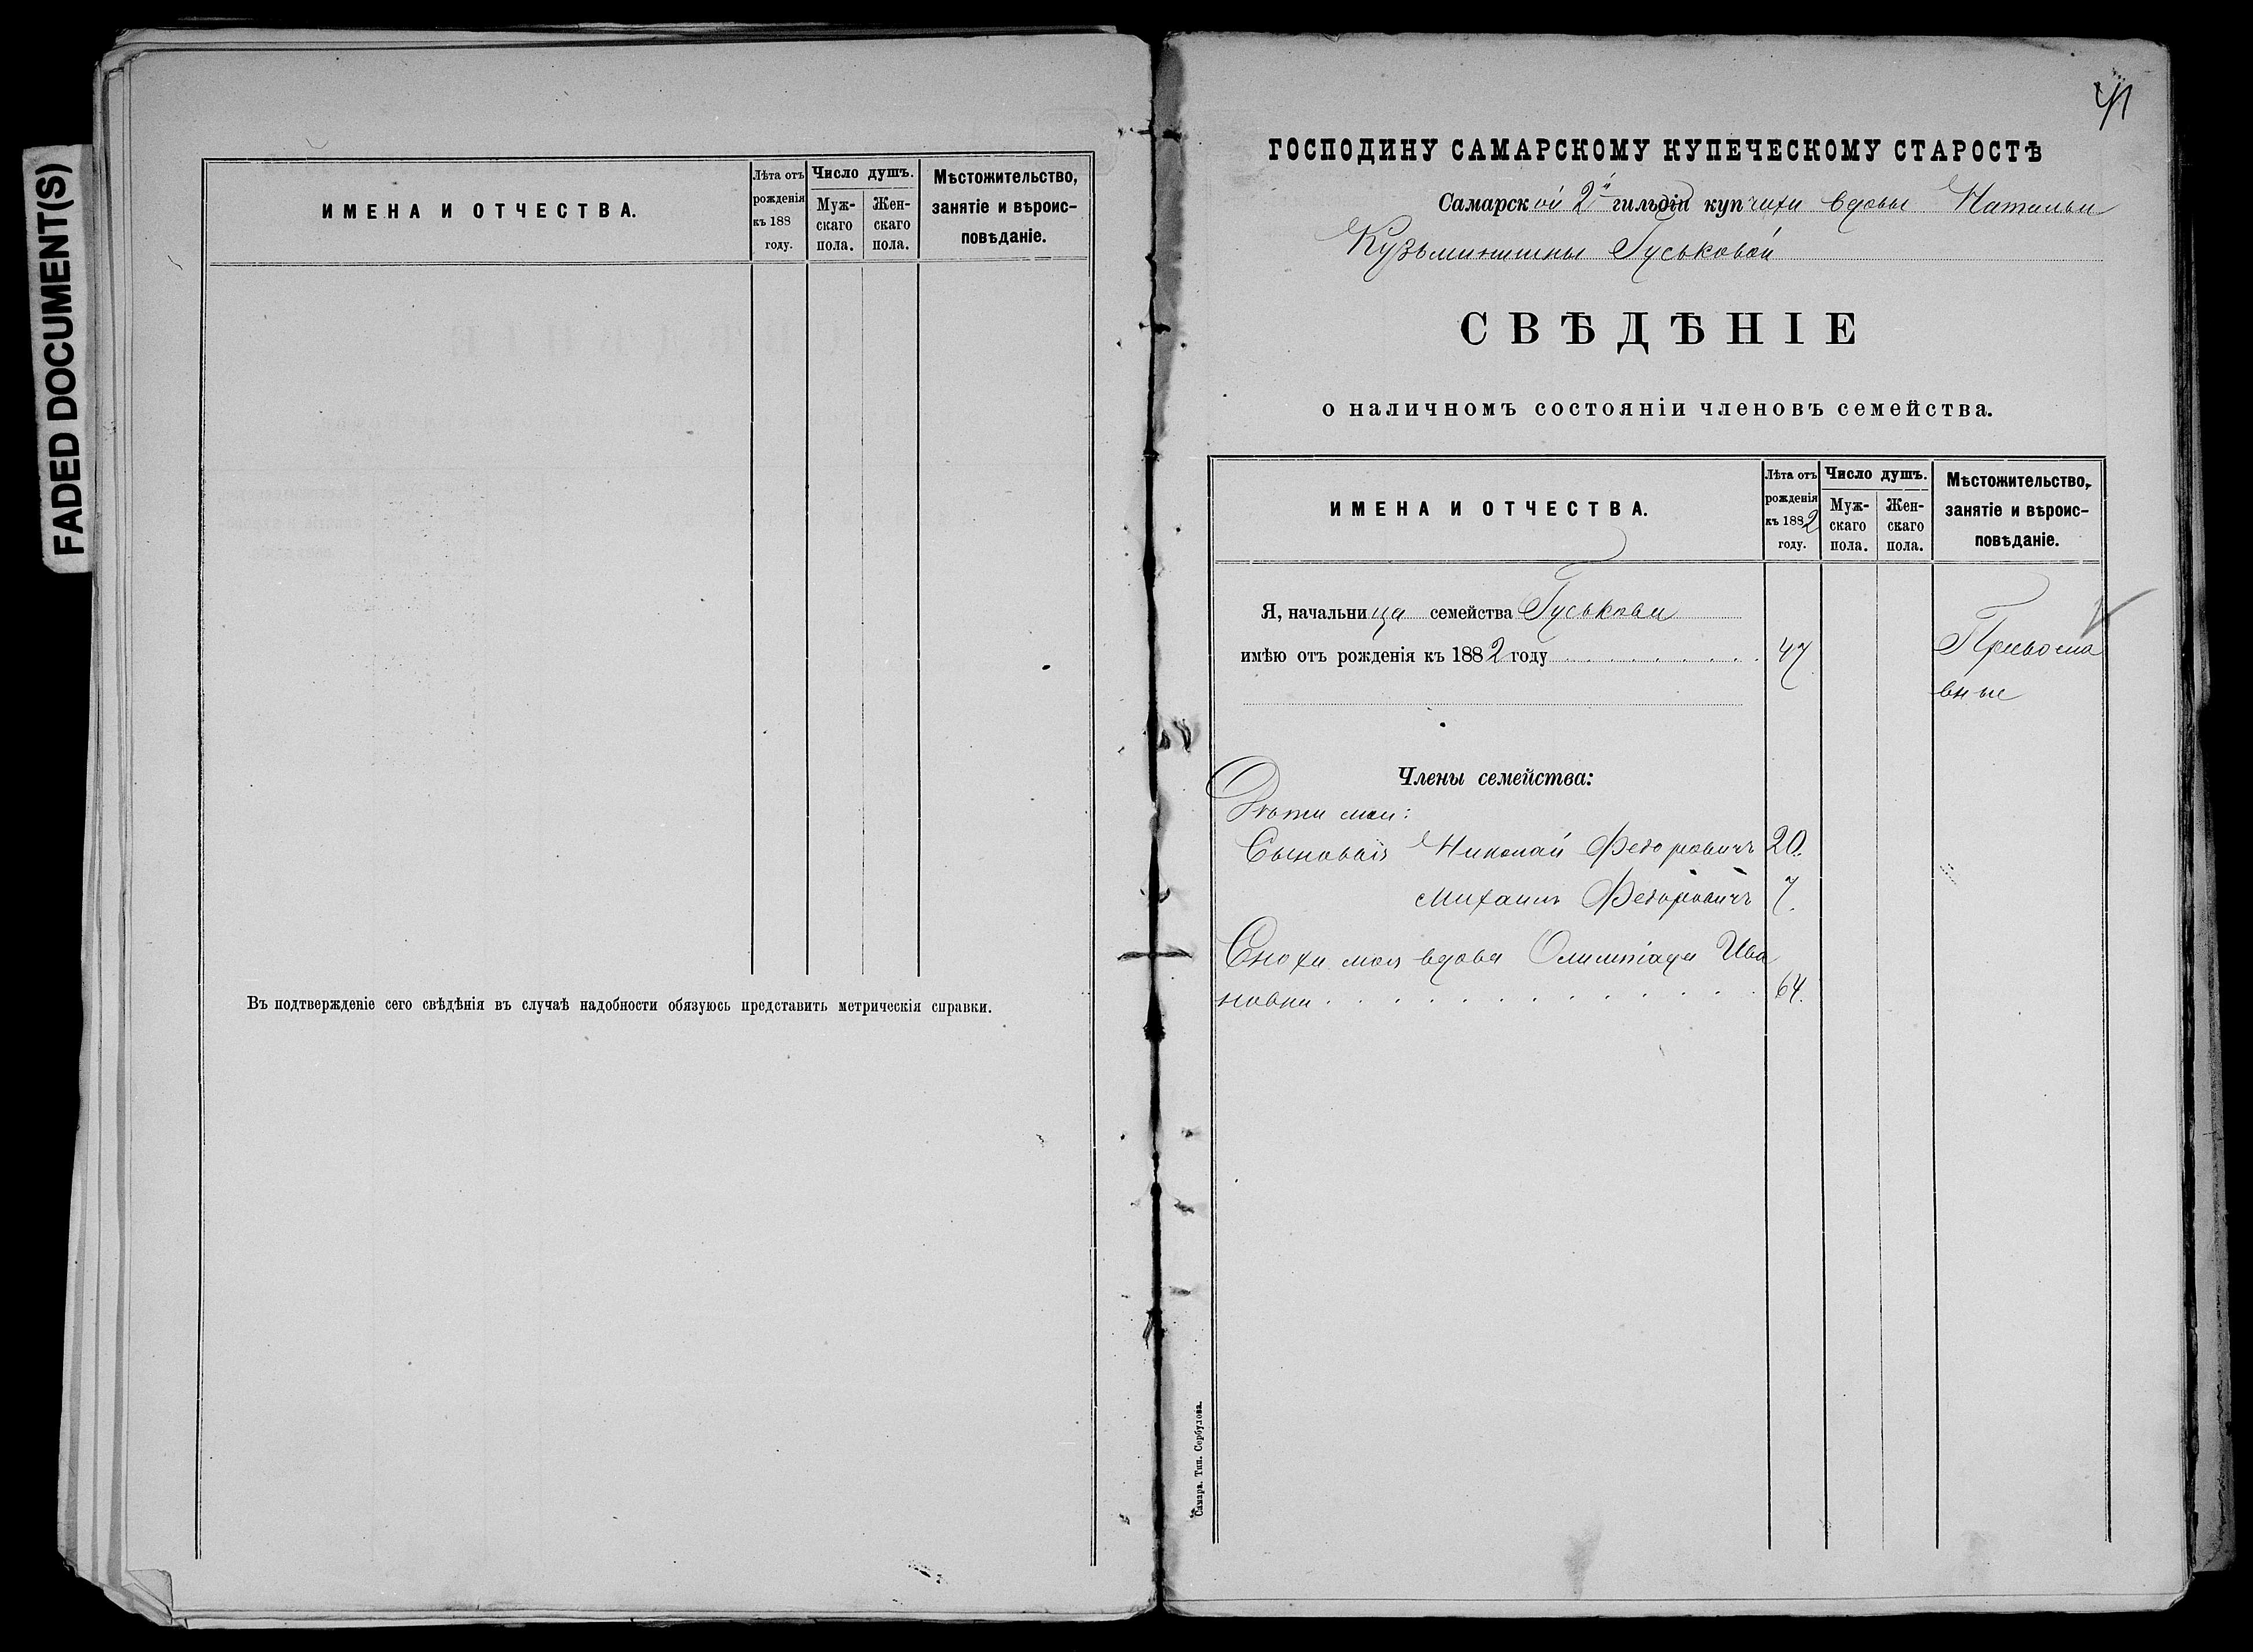 FADED DOCUMENT(S)
ИМЕНА И ОТЧЕСТВА.
Лѣта отъ рожденія къ 188 году.
Число душъ.
Муж-скаго пола.
Жен-скаго пола.
Мѣстожительство, занятіе и вѣроис-повѣданіе.
Въ подтвержденіе сего свѣдѣнія въ случаѣ надобности обязуюсь представить метрическія справки.
41
ГОСПОДИНУ САМАРСКОМУ КУПЕЧЕСКОМУ СТАРОСТѢ
Самарской 2й гильдіи купчихи вдовы Натальи
Кузьминишны Гуськовой
СВѢДѢНІЕ
о наличномъ состояніи членовъ семейства.
ИМЕНА И ОТЧЕСТВА.
Лѣта отъ рожденія къ 1882 году.
Число душъ.
Муж-скаго пола.
Жен-скаго пола.
Мѣстожительство, занятіе и вѣроис-повѣданіе.
Я, начальница семейства Гуськова
имѣю отъ рожденія къ 1882 году 47 Правосла
вные
Члены семейства:
Дѣти мои:
Сыновья Николай Федоровичъ 20.
Михаилъ Федоровичъ 7.
Сноха моя вдова Олимпіада Ива
новна 64.
Самара. Тип. Сербулова.